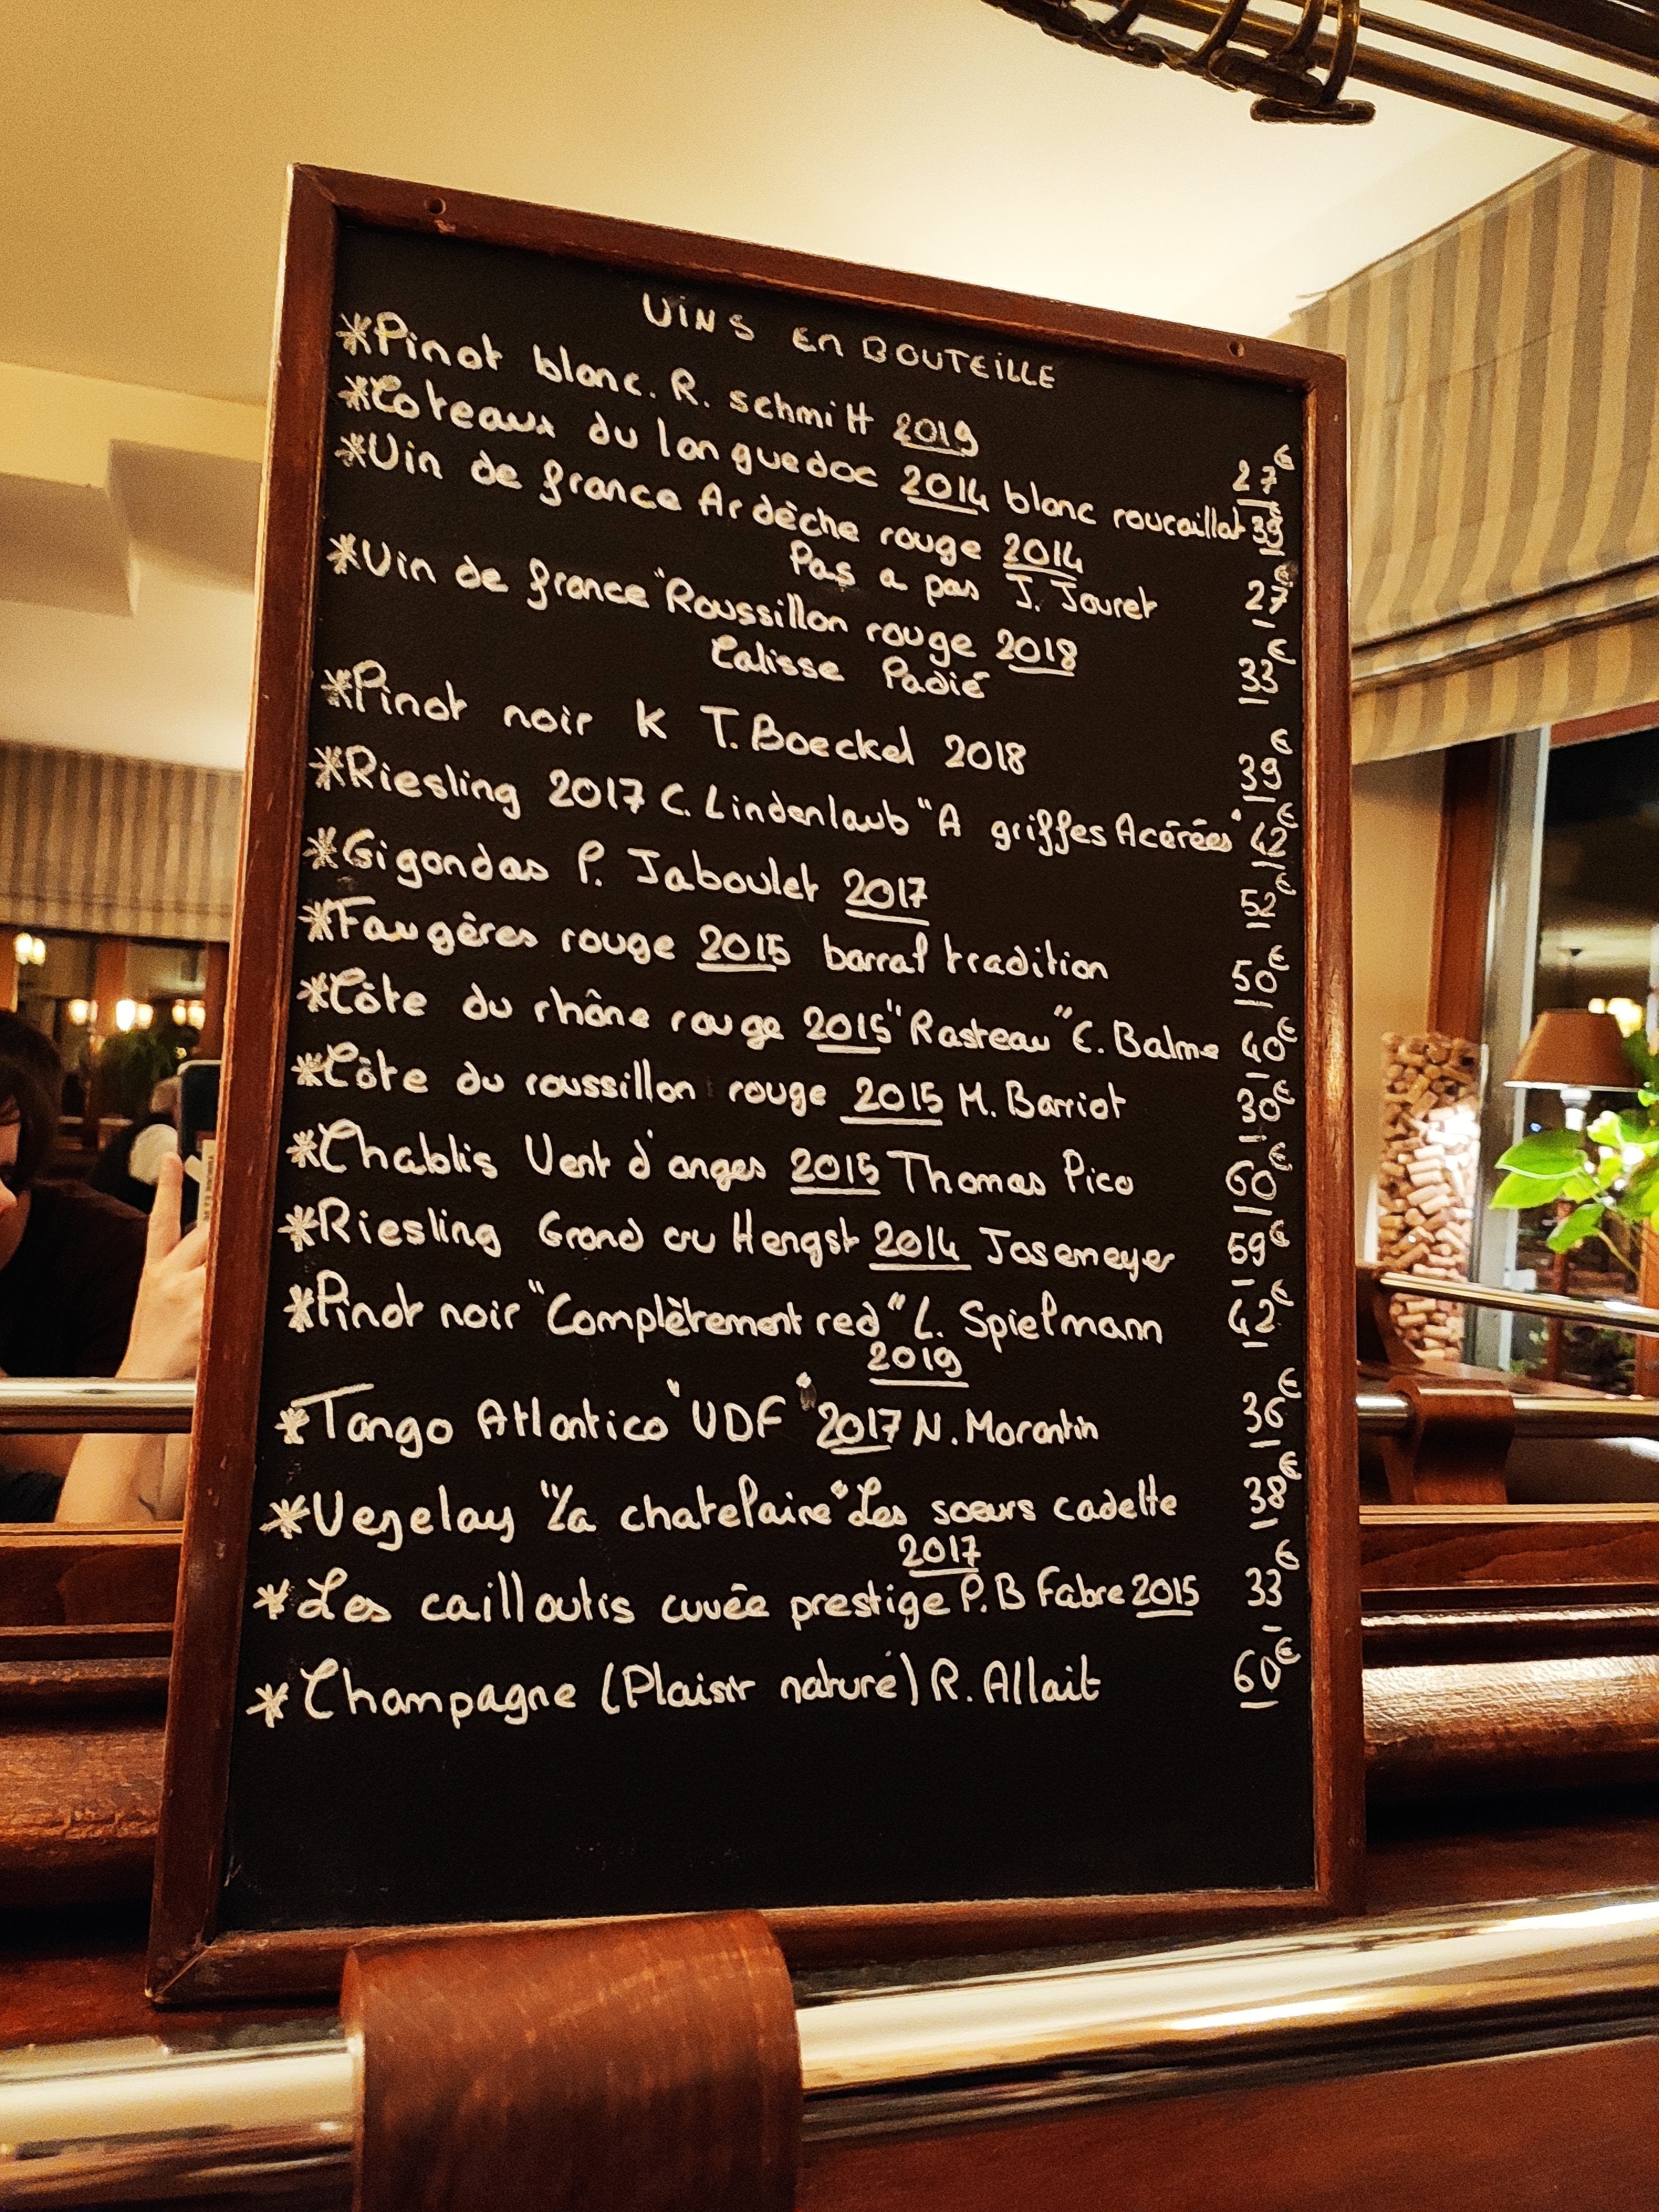 VINS En BOUTEILLE
*Pinot blanc. R. schmitt 2019 27€
*Coteaux du languedoc 2014 blanc roucaillat 39€
*Vin de france Ardèche rouge 2014
Pas a pas J. Jouret 27€
*Vin de france "Roussillon rouge 2018
Calisse Padié 33€
*Pinot noir K T. Boeckel 2018 39€
*Riesling 2017 C. Lindenlaub "A griffes Acérées" 42€
*Gigondas P. Jaboulet 2017 52€
*Faugères rouge 2015 barral tradition 50€
*Côte du rhône rouge 2015 "Rasteau" E. Balme 40€
*Côte du roussillon rouge 2015 M. Barriot 30€
*Chablis Vent d'anges 2015 Thomas Pico 60€
*Riesling Grand cru Hengst 2014 Josemeyer 59€
*Pinot noir "Complètement red" L. Spielmann 42€
2019
*Tango Atlantico "VDF" 2017 N. Morantin 36€
*Vezelay "La chatelaine" Les sœurs cadette 38€
2017
*Les cailloutis cuvée prestige P.B Fabre 2015 33€
*Champagne (Plaisir naturé) R. Allait 60€